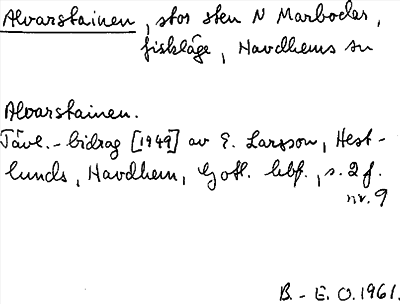 Alvarstainen, stor sten N Marbodar,
fiskläge, Havdhems sn
Alvarstainen.
Tävl.-bidrag [1949] av E. Larsson, Hest-
lunds, Havdhem, Gotl. hbf., s. 2 f.
nr. 9
B.-E. O. 1961.